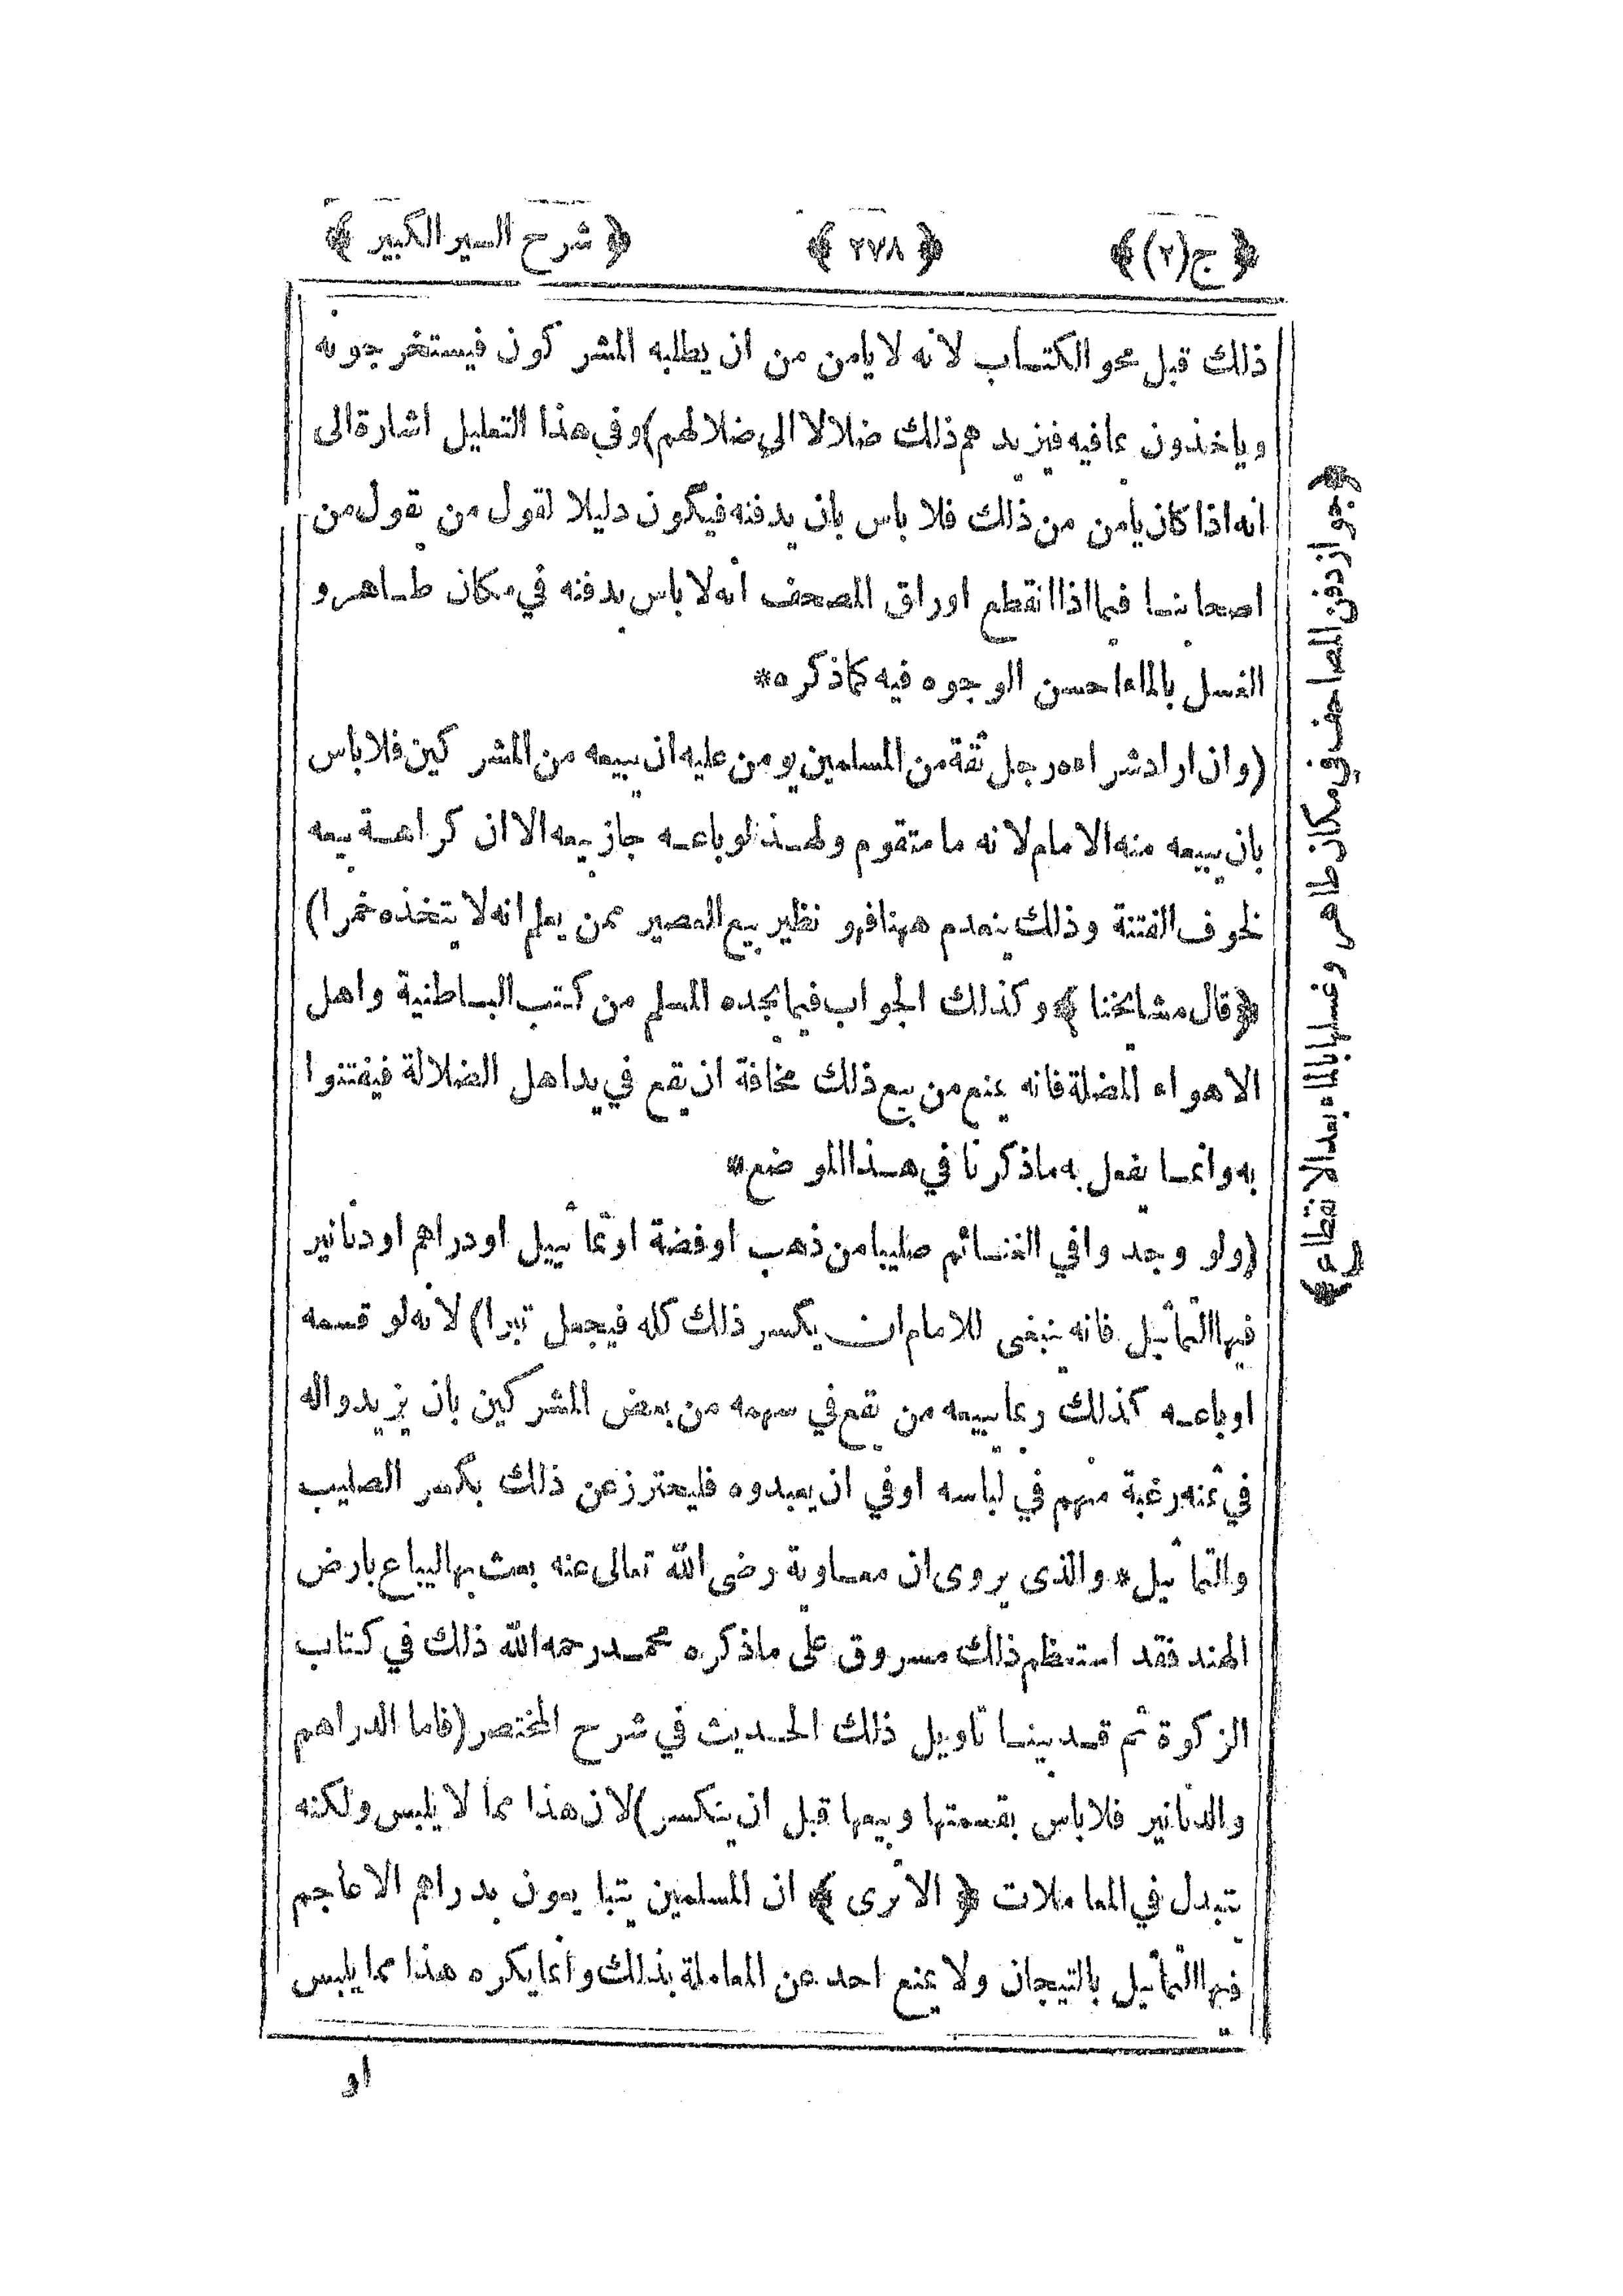 ﴿ ج(٢) ﴾ ﴿ ٢٧٨ ﴾ ﴿ شرح السير الكبير ﴾
ذلك قبل محو الكتاب لانه لا يامن من ان يطلبه المشركون فيستخرجونه
وياخذون بمافيه فيزيدهم ذلك ضلالا الى ضلالهم) وفي هذا التعليل اشارة الى
انه اذا كان يامن من ذلك فلا باس بان يدفنه فيكون دليلا لقول من يقول من
اصحابنا فيما اذا انقطع اوراق المصحف انه لا باس بدفنه في مكان طاهر و
الغسل بالماء احسن الوجوه فيه كما ذكره*
(وان اراد شراءه رجل ثقة من المسلمين يومن عليه ان يبيعه من المشركين فلا باس
بان يبيعه منه الامام لانه مامتقوم ولهذ لو باعه جاز بيعه الا ان كراهة بيعه
لخوف الفتنة وذلك ينعدم ههنا فهو نظير بيع العصير ممن يعلم انه لا يتخذه خمرا)
﴿ قال مشايخنا ﴾ وكذلك الجواب فيما يجده المسلم من كتب الباطنية واهل
الاهواء المضلة فانه يمنع من بيع ذلك مخافة ان يقع في يد اهل الضلالة فيفتنوا
به وانما يفعل به ماذكرنا في هذا الموضع*
(ولو وجدوا في الغنائم صليبا من ذهب او فضة او تماثييل او دراهم او دنانير
فيها التماثيل فانه ينبغي للامام ان يكسر ذلك كله فيجعل تبرا) لانه لو قسمه
او باعه كذلك ربما يبيعه من يقع في سهمه من بعض المشركين بان يزيدوا له
في ثمنه رغبة منهم في لباسه او في ان يعبدوه فليحترز عن ذلك بكسر الصليب
والتماثيل* والذى يروى ان معاوية رضى الله تعالى عنه بعث بها ليباع بارض
الهند فقد استعظم ذلك مسروق على ماذكره محمد رحمه الله ذلك في كتاب
الزكوة ثم قد بينا تاويل ذلك الحديث في شرح المختصر (فاما الدراهم
والدنانير فلا باس بقسمتها وبيعها قبل ان ينكسر) لان هذا مما لا يلبس ولكنه
يتبدل في المعاملات ﴿ الا ترى ﴾ ان المسلمين يتبايعون بدراهم الاعاجم
فيها التماثيل بالتيجان ولا يمنع احد عن المعاملة بذلك وانما يكره هذا مما يلبس
او
﴿ جواز دفن المصاحف في مكان طاهر وغسلها بالماء بعد الانقطاع ﴾